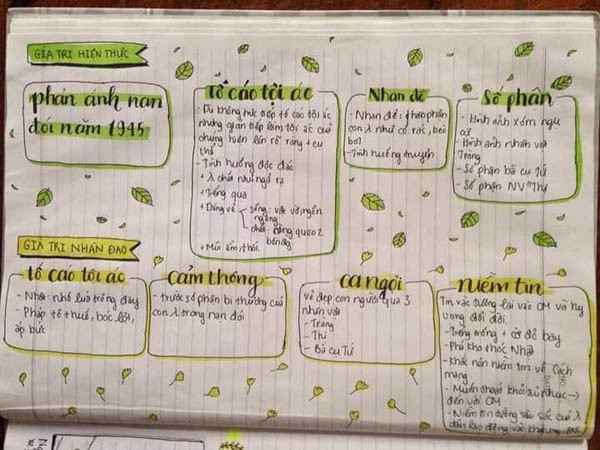 GIÁ TRỊ HIỆN THỰC
phản ánh nạn
đói năm 1945
Tố cáo tội ác
- Dù không trực tiếp tố cáo tội ác
nhưng gián tiếp làm tội ác của
chúng hiện lên rõ ràng + cụ
thể
- Tình huống độc đáo
+ λ chết như ngả rạ
+ Tiếng quạ
+ Dáng vẻ
sống: vật vờ, ngổn
ngang
chết: còng queo 2
bên đg
+ Mùi ẩm, thối.
Nhan đề
- Nhan đề: thân phận
con λ như cỏ rác, bèo
bọt
- Tình huống truyện
Số phận
- Hình ảnh xóm ngụ
cư
- Hình ảnh nhân vật
Tràng
- Số phận bà cụ Tứ
- Số phận NV "Thị
GIÁ TRỊ NHÂN ĐẠO
Tố cáo tội ác
- Nhật: nhổ lúa trồng đay
- Pháp: tô thuế, bóc lột,
áp bức
Cảm thông
- trước số phận bi thương của
con λ trong nạn đói
Ca ngợi
Vẻ đẹp con người qua 3
nhân vật
- Tràng
- Thị
- Bà cụ Tứ
Niềm tin
Tin vào tương lai vào CM và hy
vọng đổi đời
- Trống + cờ đỏ bay
- Phá kho thóc Nhật
- Khát niềm tin về Cách
mạng
- Muốn thoát khỏi tủi nhục →
đến với CM
- Niềm tin sâu sắc của λ
dân lao động và